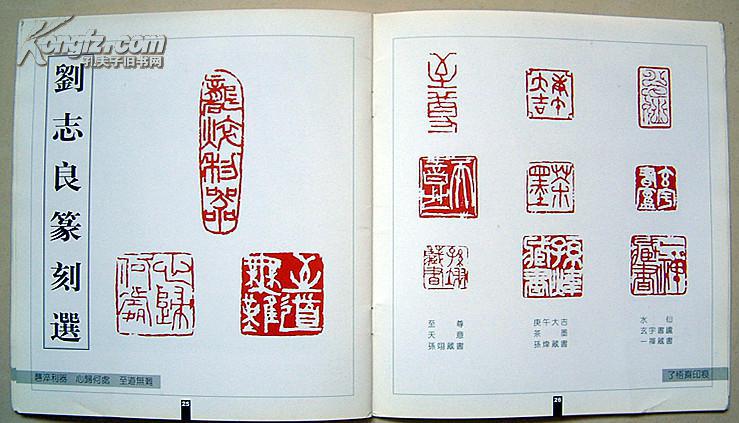 Kongfz.com
孔夫子旧书网
劉志良篆刻選
至道無難
心歸何處
淬利器 心歸何處 至道無難
25
至尊
天意
孫翊藏書
庚午大吉
茶墨
孫煒藏書
水仙
玄宇書盧
一禪藏書
了悟齋印痕
26